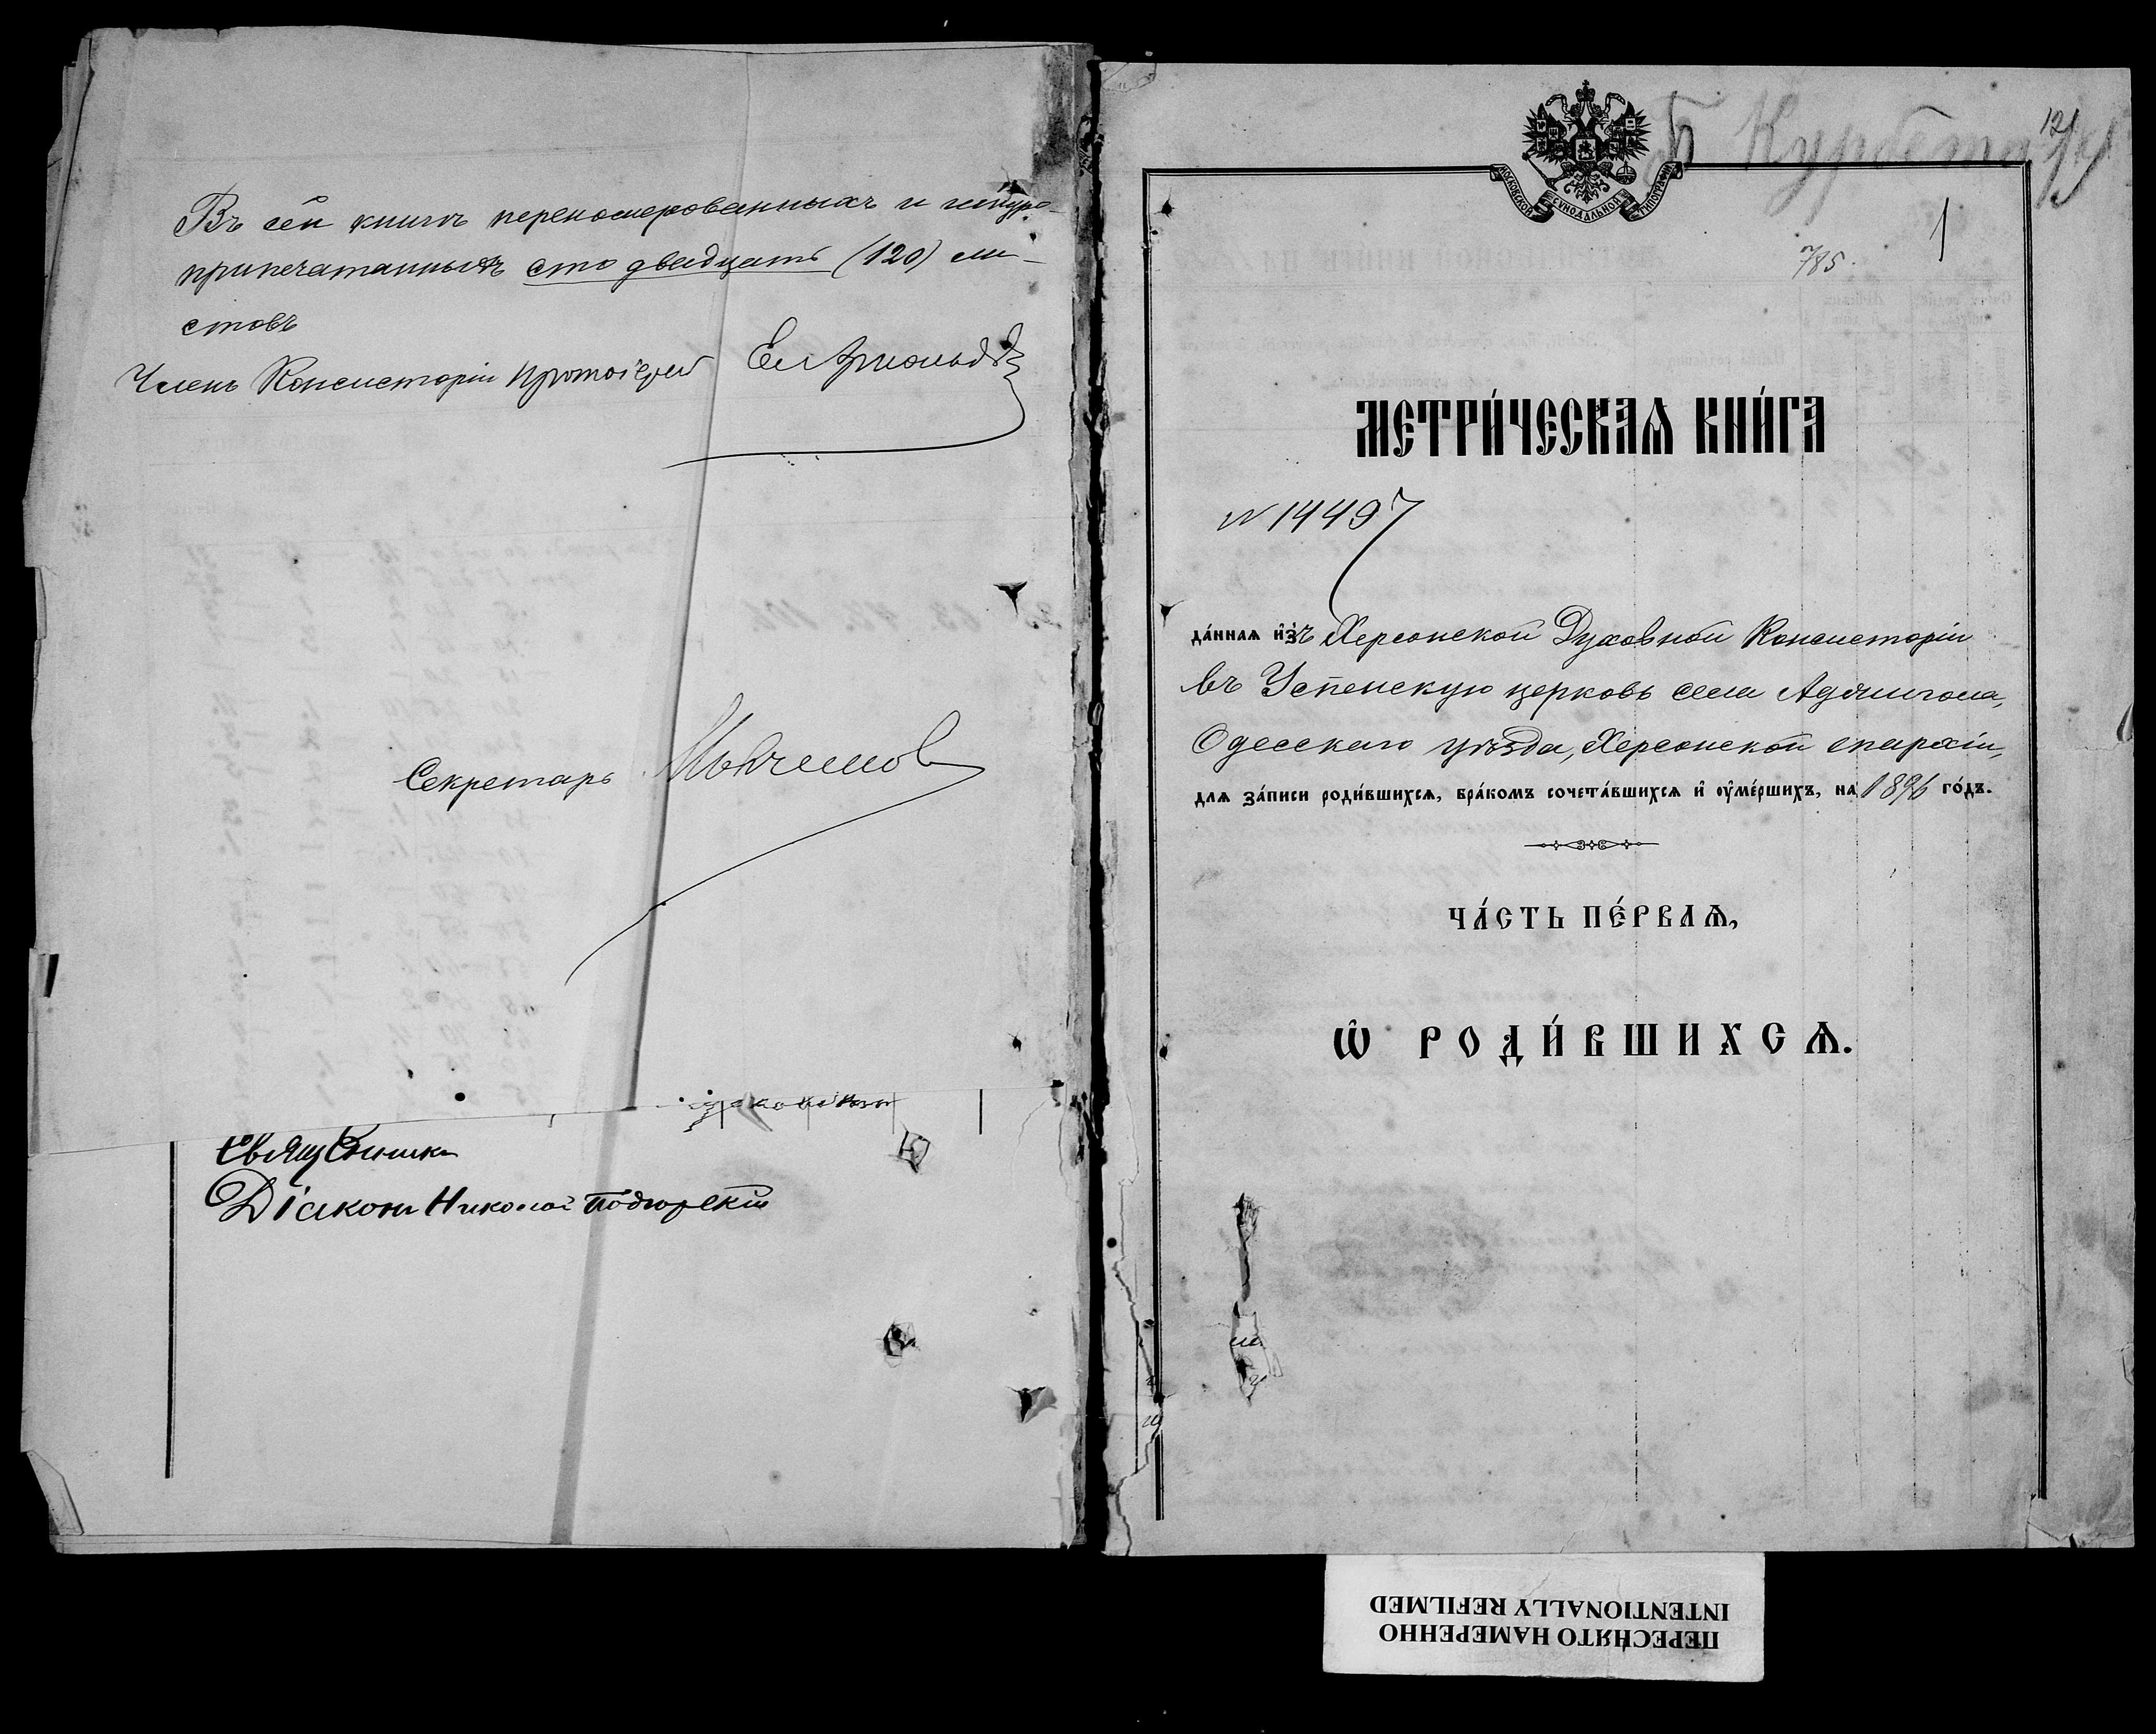 Въ сей книгѣ перенумерованныхъ и шнуро-
припечатанныхъ сто двадцать (120) ли-
стовъ
Членъ Консисторіи Протоіерей
Секретарь
Священникъ
Діаконъ Николай Подгорскій
12
785.
1
МОСКОВСКОЙ СѴНОДАЛЬНОЙ ТИПОГРАФІИ
МЕТРИ́ЧЕСКАѦ КНИ́ГА
N 14497
да́ннаѧ и҆зъ Херсонской Духовной Консисторіи
въ Успенскую церковь села Аджигола,
Одесскаго уѣзда, Херсонской епархіи,
длѧ за́писи роди́вшихсѧ, бра́комъ сочета́вшихсѧ и҆ оу҆ме́ршихъ, на 1896 го́дъ.
ЧА́СТЬ ПЕ́РВАѦ,
Ѡ҆ РОДИ́ВШИХСѦ.
ПЕРЕСНЯТО НАМЕРЕННО
INTENTIONALLY REFILMED